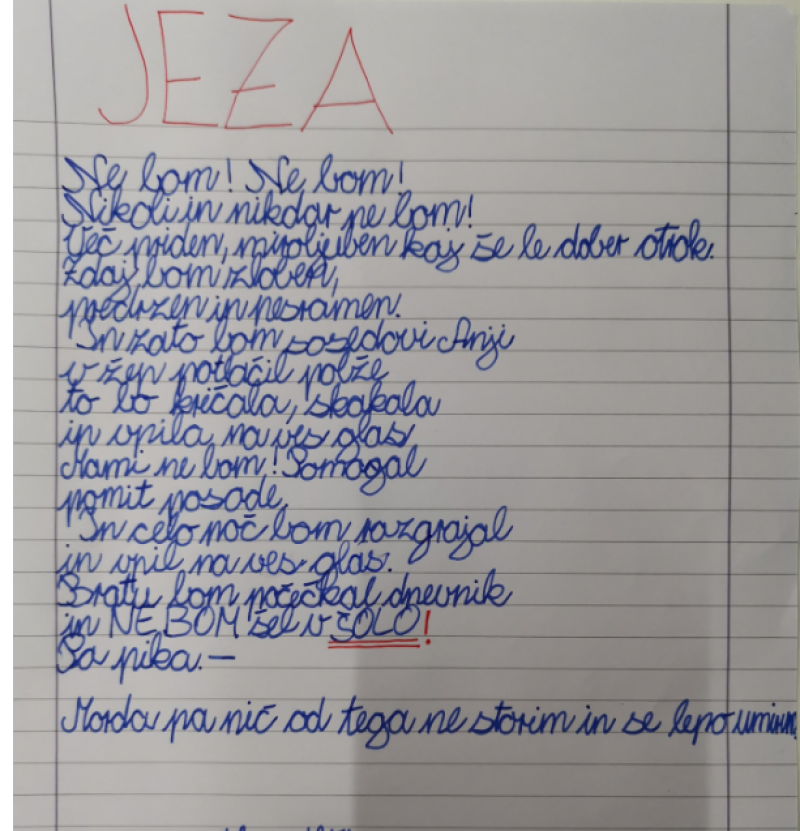 JEZA
Ne bom! Ne bom!
Nikoli in nikdar ne bom!
Več priden, miroljuben kaj še le dober otrok.
Zdaj bom zloben,
predrzen in nesramen.
In zato bom sosedovi Anji
v žep potlačil polže
to bo kričala, skakala
in vpila na ves glas
Mami ne bom! Pomagal
pomit posode,
In celo noč bom razgrajal
in vpil na ves glas.
Bratu bom počečkal dnevnik
in NE BOM šel v ŠOLO!
Pa pika.—
Morda pa nič od tega ne storim in se lepo umirim